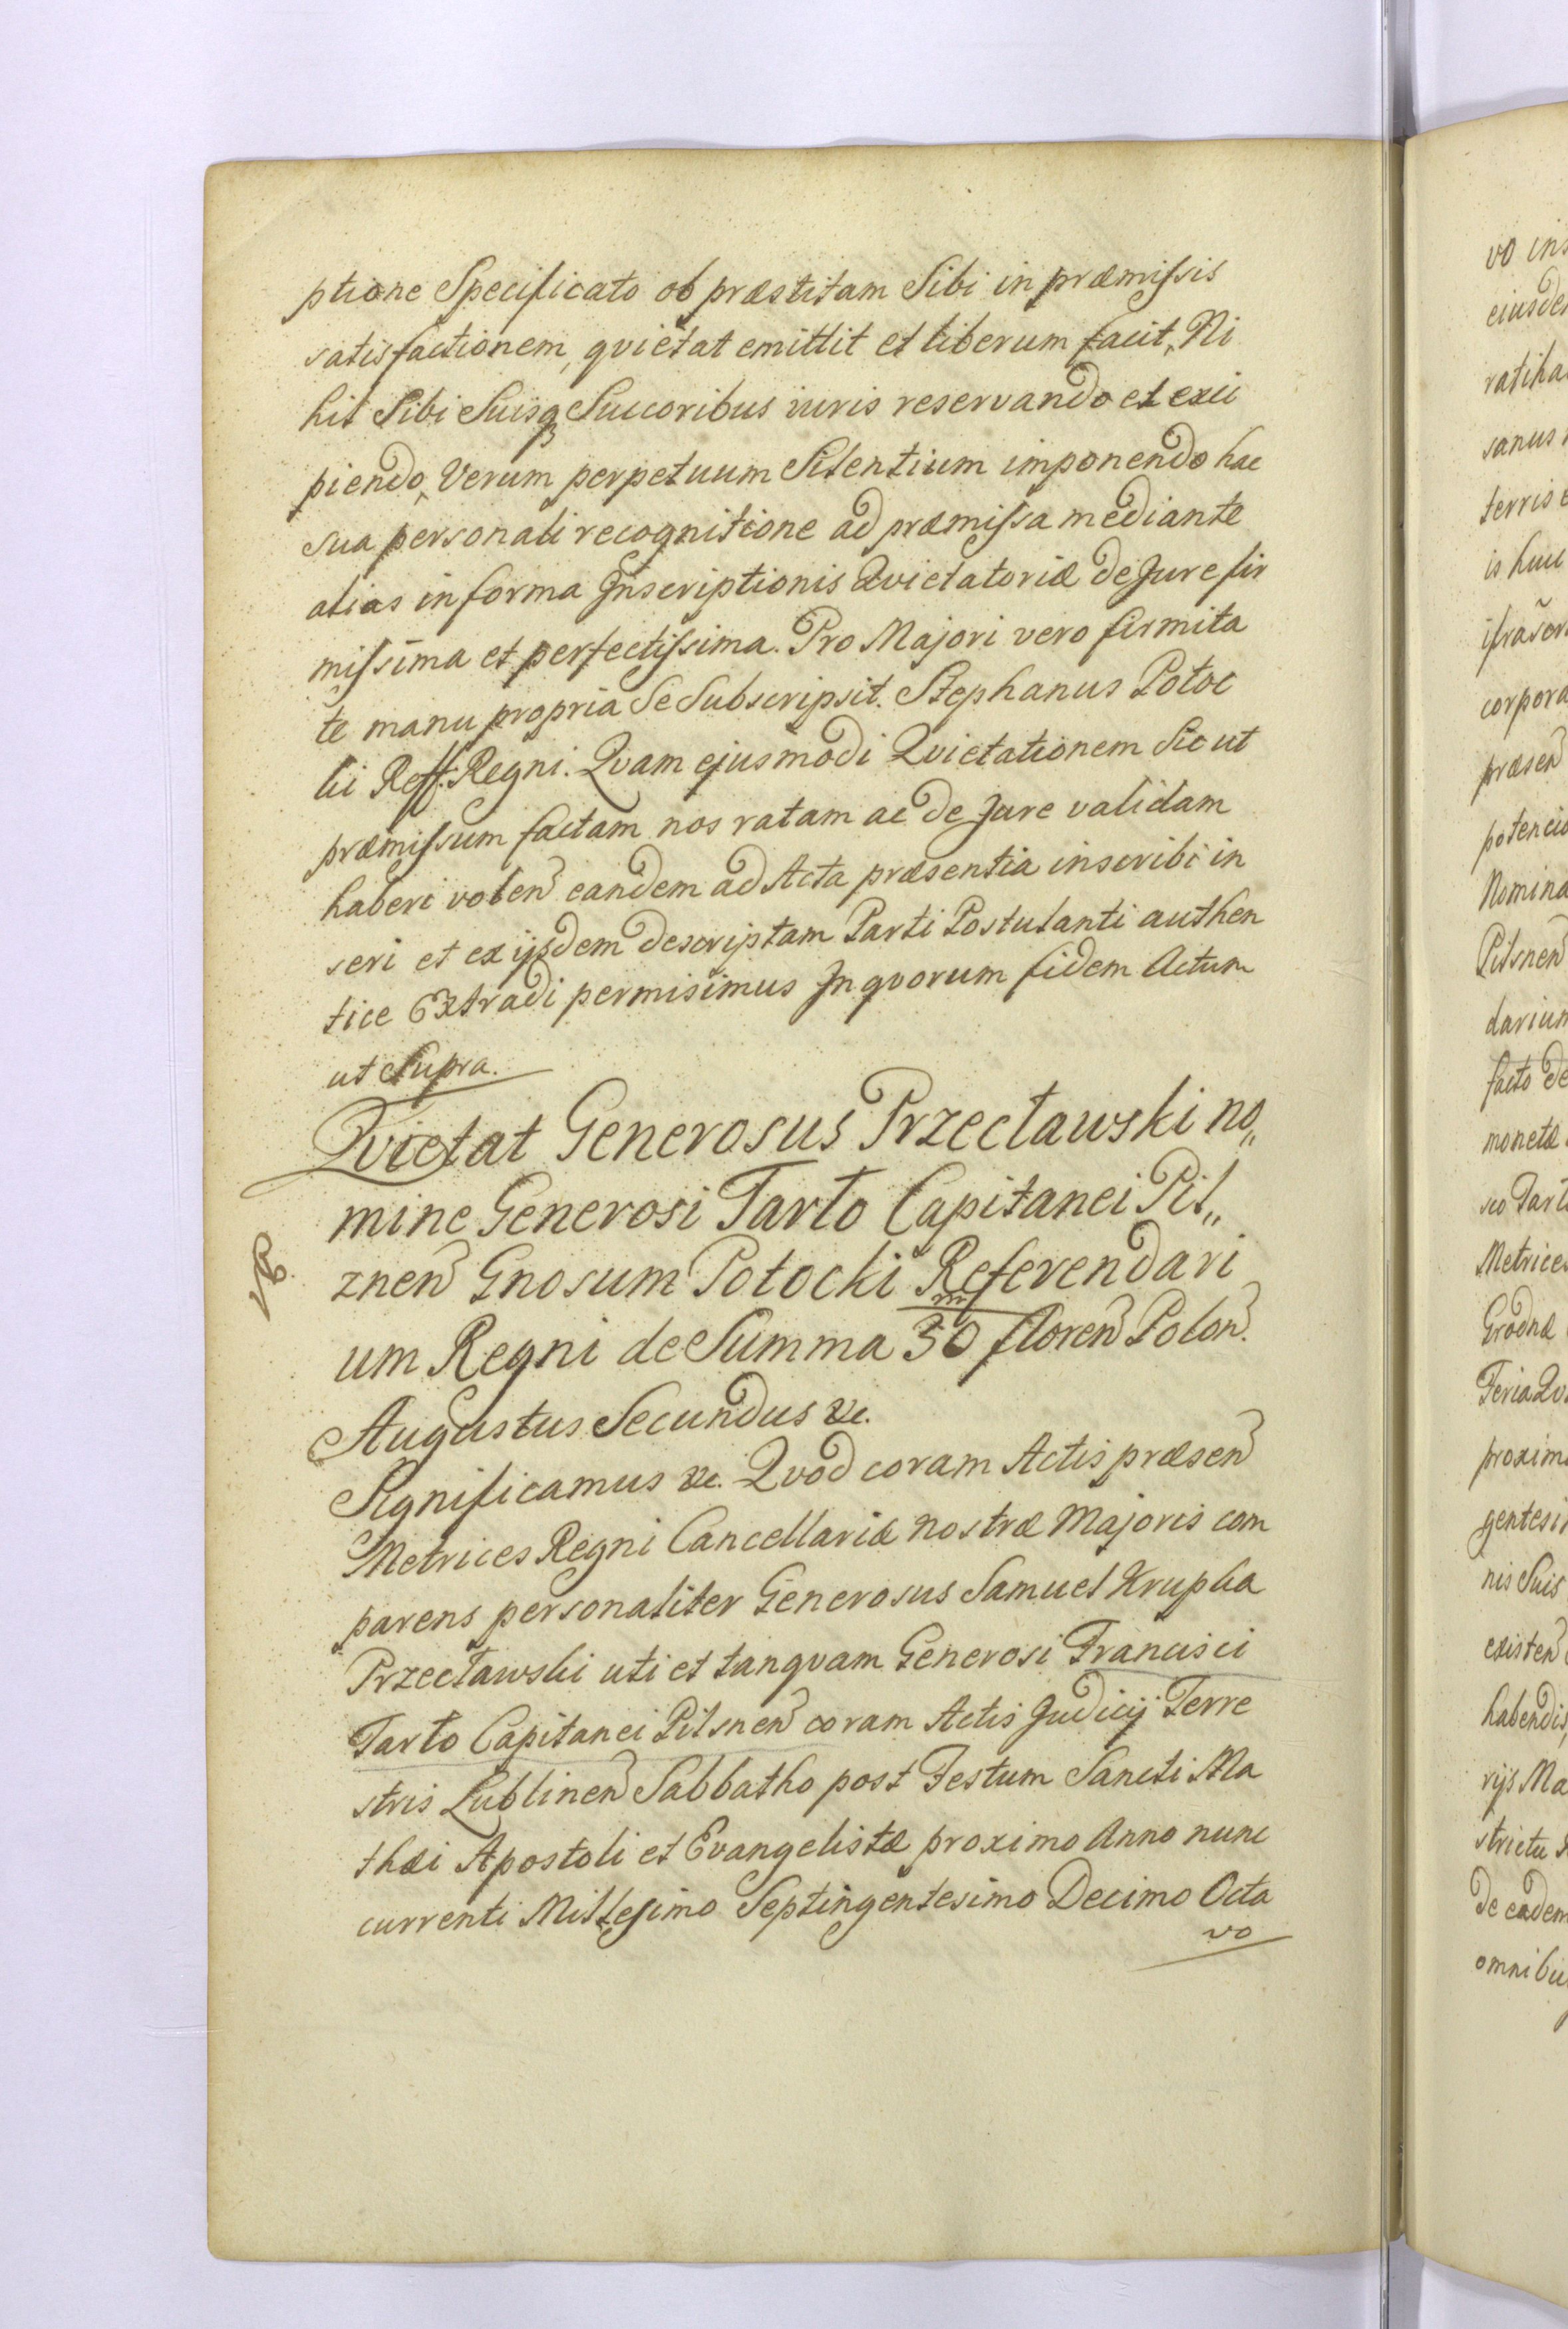 ptione Specificato ob præstitam Sibi in præmissis
satisfactionem, qvietat emittit et liberum facit, Ni
hil Sibi Suisq Succoribus iuris reservando et exci
piendo, Verum perpetuum Silentium imponendo hac
sua personali recognitione ad præmissa mediante
alias in forma Inscriptionis Qvietatoriæ de Jure fir
missima et perfectissima. Pro Majori vero firmita
te manu propria Se Subscripsit. Stephanus Potoc
ki Reff: Regni. Qvam ejusmodi Qvietationem Sic ut
præmissum factam nos ratam ac de Jure validam
haberi volen eandem ad Acta præsentia inscribi in
seri et ex ijsdem descriptam Parti Postulanti authen
tice Extradi permisimus In qvorum fidem Actum
ut Supra.
Qvietat Generosus Przecławski no„
mine Generosi Tarło Capitanei Pil„
znen Gnosum Potocki Referendari
um Regni de Summa 30 m floren Polon.
Augustus Secundus &c.
Significamus &c. Qvod coram Actis præsen
Metrices Regni Cancellariæ nostræ Majoris com
parens personaliter Generosus Samuel Krupka
Przecławski uti et tanqvam Generosi Francisci
Tarło Capitanei Pilsnen coram Actis Judicij Terre
stris Lublinen Sabbatho post Festum Sancti Ma
thæi Apostoli et Evangelistæ proximo Anno nunc
currenti Millesimo Septingentesimo Decimo Octa
vo
vo ins
eiusde
ratiha
sanus
terris
is huc
corpora
præsen
potencio
Nomina
Pilsnen
darium
facto de
monetæ
sco Tarł
Metrices
Grodnæ
Feria Qv
proxim
gentesi
nis Suis
existen
habendis
rijs Ma
strictu
de eadem
omnibu